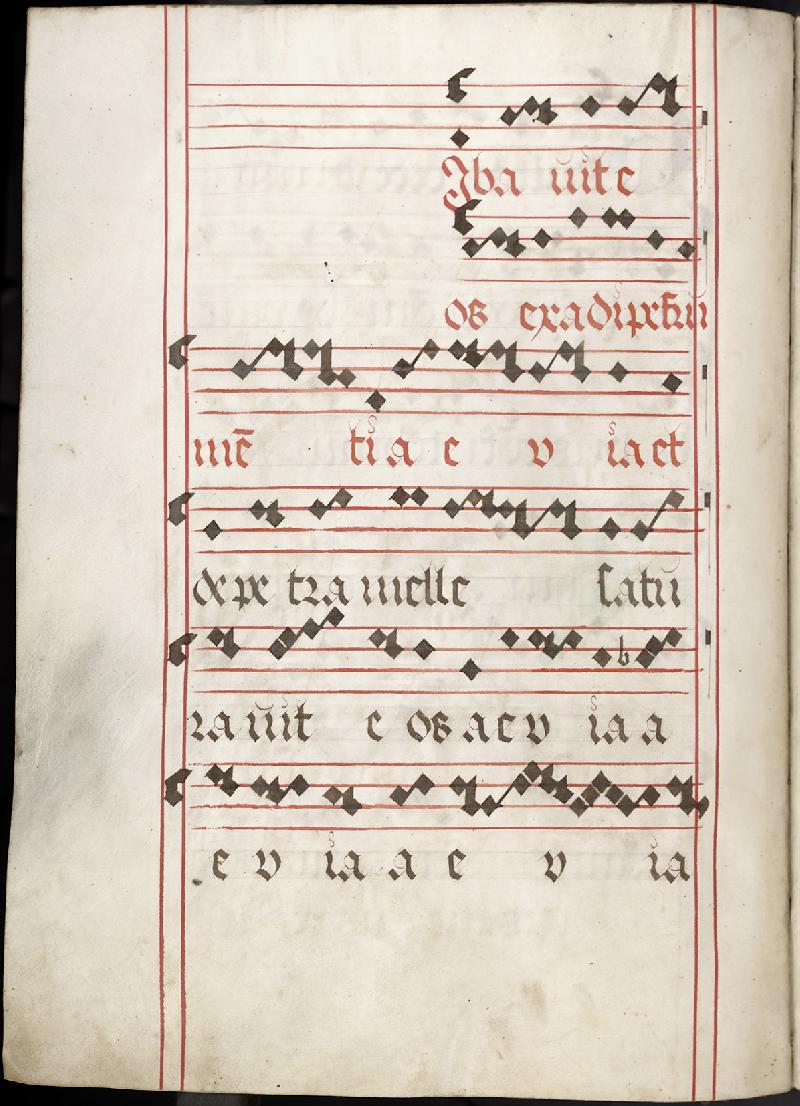 Iba uit e
os ex adipe fru
mē ti a e v ia et
de pe tra melle satu
ra uit e os a e v ia a
e v ia a e v ia